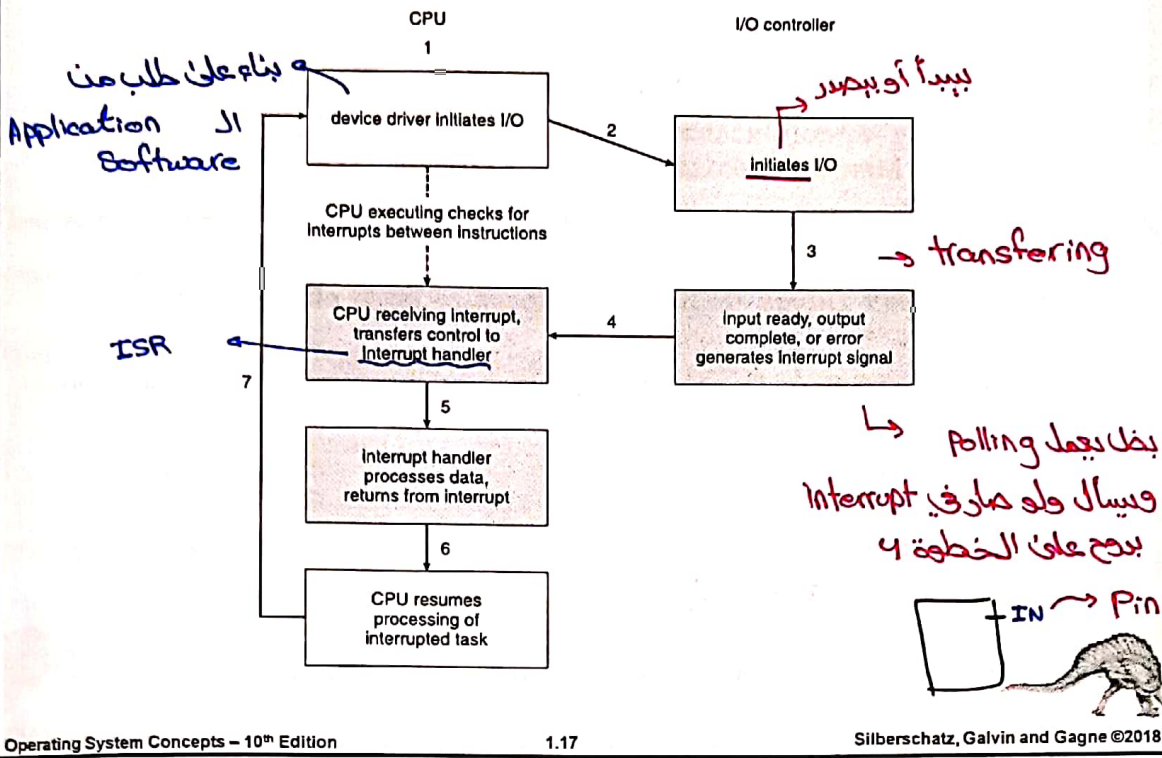 CPU
I/O controller
1
بناء على طلب من
ال Application
Software
device driver initiates I/O
2
بيبدأ أو بيصدر
initiates I/O
CPU executing checks for
interrupts between instructions
3
transfering
CPU receiving interrupt,
transfers control to
interrupt handler
ISR
4
input ready, output
complete, or error
generates interrupt signal
7
5
بضل يعمل Polling
ويسأل ولو صار في Interrupt
بروح على الخطوة 4
interrupt handler
processes data,
returns from interrupt
6
CPU resumes
processing of
interrupted task
IN
Pin
Operating System Concepts – 10th Edition
1.17
Silberschatz, Galvin and Gagne ©2018